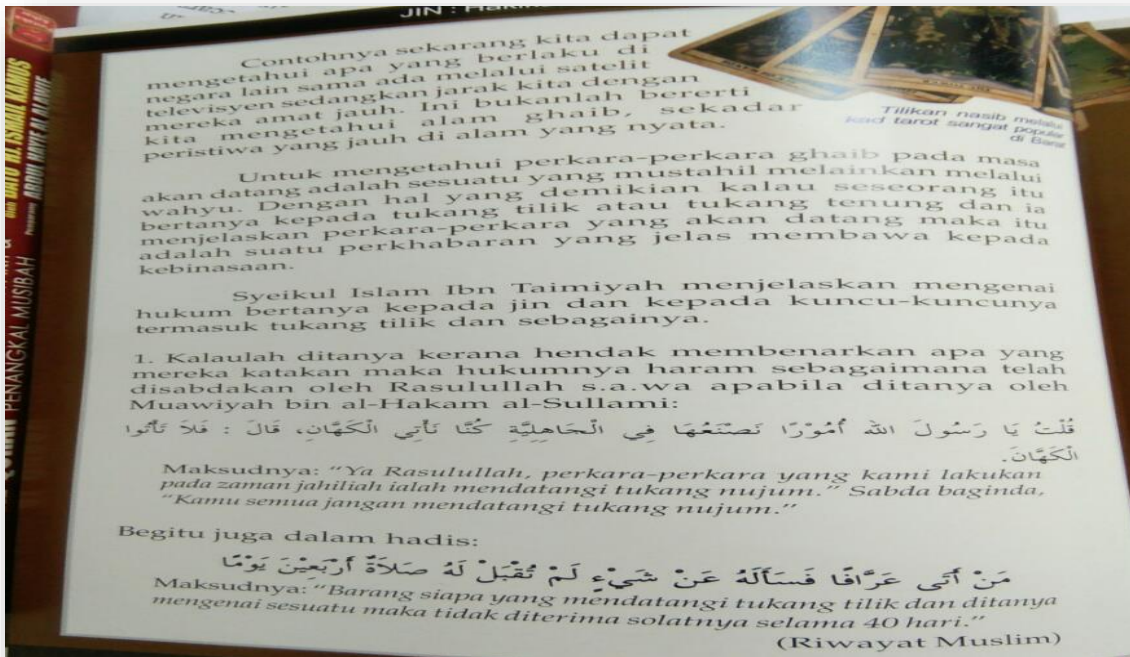 JIN : Haki
Contohnya sekarang kita dapat
mengetahui apa yang berlaku di
negara lain sama ada melalui satelit
televisyen sedangkan jarak kita dengan
mereka amat jauh. Ini bukanlah bererti
kita mengetahui alam ghaib, sekadar
peristiwa yang jauh di alam yang nyata.
Tilikan nasib melalui
kad tarot sangat popular
di Barat
Untuk mengetahui perkara-perkara ghaib pada masa
akan datang adalah sesuatu yang mustahil melainkan melalui
wahyu. Dengan hal yang demikian kalau seseorang itu
bertanya kepada tukang tilik atau tukang tenung dan ia
menjelaskan perkara-perkara yang akan datang maka itu
adalah suatu perkhabaran yang jelas membawa kepada
kebinasaan.
Syeikul Islam Ibn Taimiyah menjelaskan mengenai
hukum bertanya kepada jin dan kepada kuncu-kuncunya
termasuk tukang tilik dan sebagainya.
1. Kalaulah ditanya kerana hendak membenarkan apa yang
mereka katakan maka hukumnya haram sebagaimana telah
disabdakan oleh Rasulullah s.a.wa apabila ditanya oleh
Muawiyah bin al-Hakam al-Sullami:
قُلْتُ يَا رَسُولَ الله أُمُوْرًا نَصْنَعُهَا فِي الْجَاهِلِيَّةِ كُنَّا نَأْتِي الْكَهَّانِ، قَالَ : فَلاَ تَأْتُوا
الْكَهَّانَ.
Maksudnya: “Ya Rasulullah, perkara-perkara yang kami lakukan
pada zaman jahiliah ialah mendatangi tukang nujum.” Sabda baginda,
“Kamu semua jangan mendatangi tukang nujum.”
Begitu juga dalam hadis:
مَنْ أَتَى عَرَّافًا فَسَأَلَهُ عَنْ شَيْءٍ لَمْ تُقْبَلْ لَهُ صَلاَةٌ أَرْبَعِيْنَ يَوْمًا
Maksudnya: “Barang siapa yang mendatangi tukang tilik dan ditanya
mengenai sesuatu maka tidak diterima solatnya selama 40 hari.”
(Riwayat Muslim)
Oleh DATO' HJ. ISMAIL KAMUS
PENANGKAL MUSIBAH